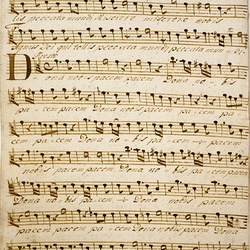 peccata mundi miserere nobis
Agnus Dei qui tollis peccata mundi, peccata mundi
Dona nobis pacem pacem Dona nobis
pacem pacem Dona nobis pacem pacem
pacem pacem Dona nobis pacem pacem
nobis pacem pacem pacem Dona nobis
Dona nobis pacem Dona nobis pacem
pacem pacem Dona nobis pacem